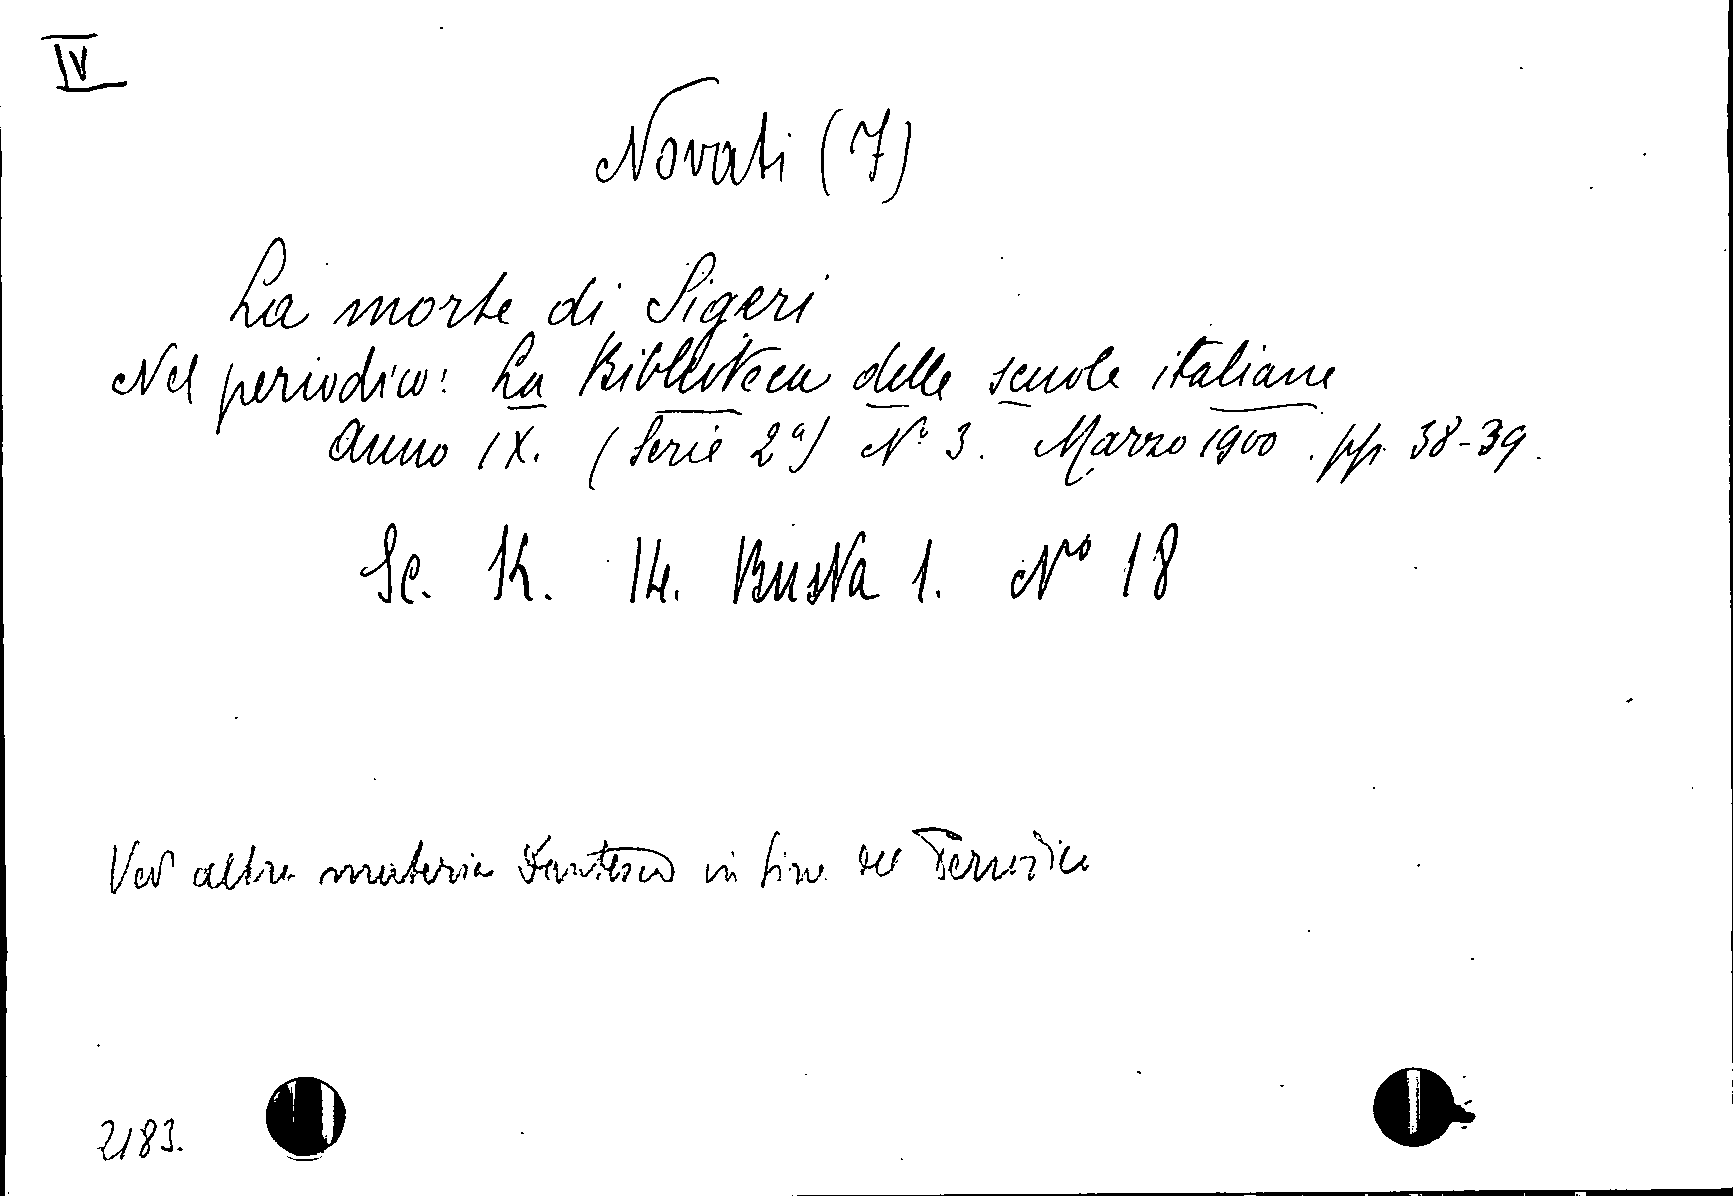 IV
Novati (7)
La morte di Sigeri
Nel periodico: La Biblioteca delle scuole italiane
Anno IX. (Serie 2a) No 3. Marzo 1900. pp. 38-39.
Sc. K. 14. Busta 1. No 18
Ved altra materia Dantesca in fine del Periodico
2183.